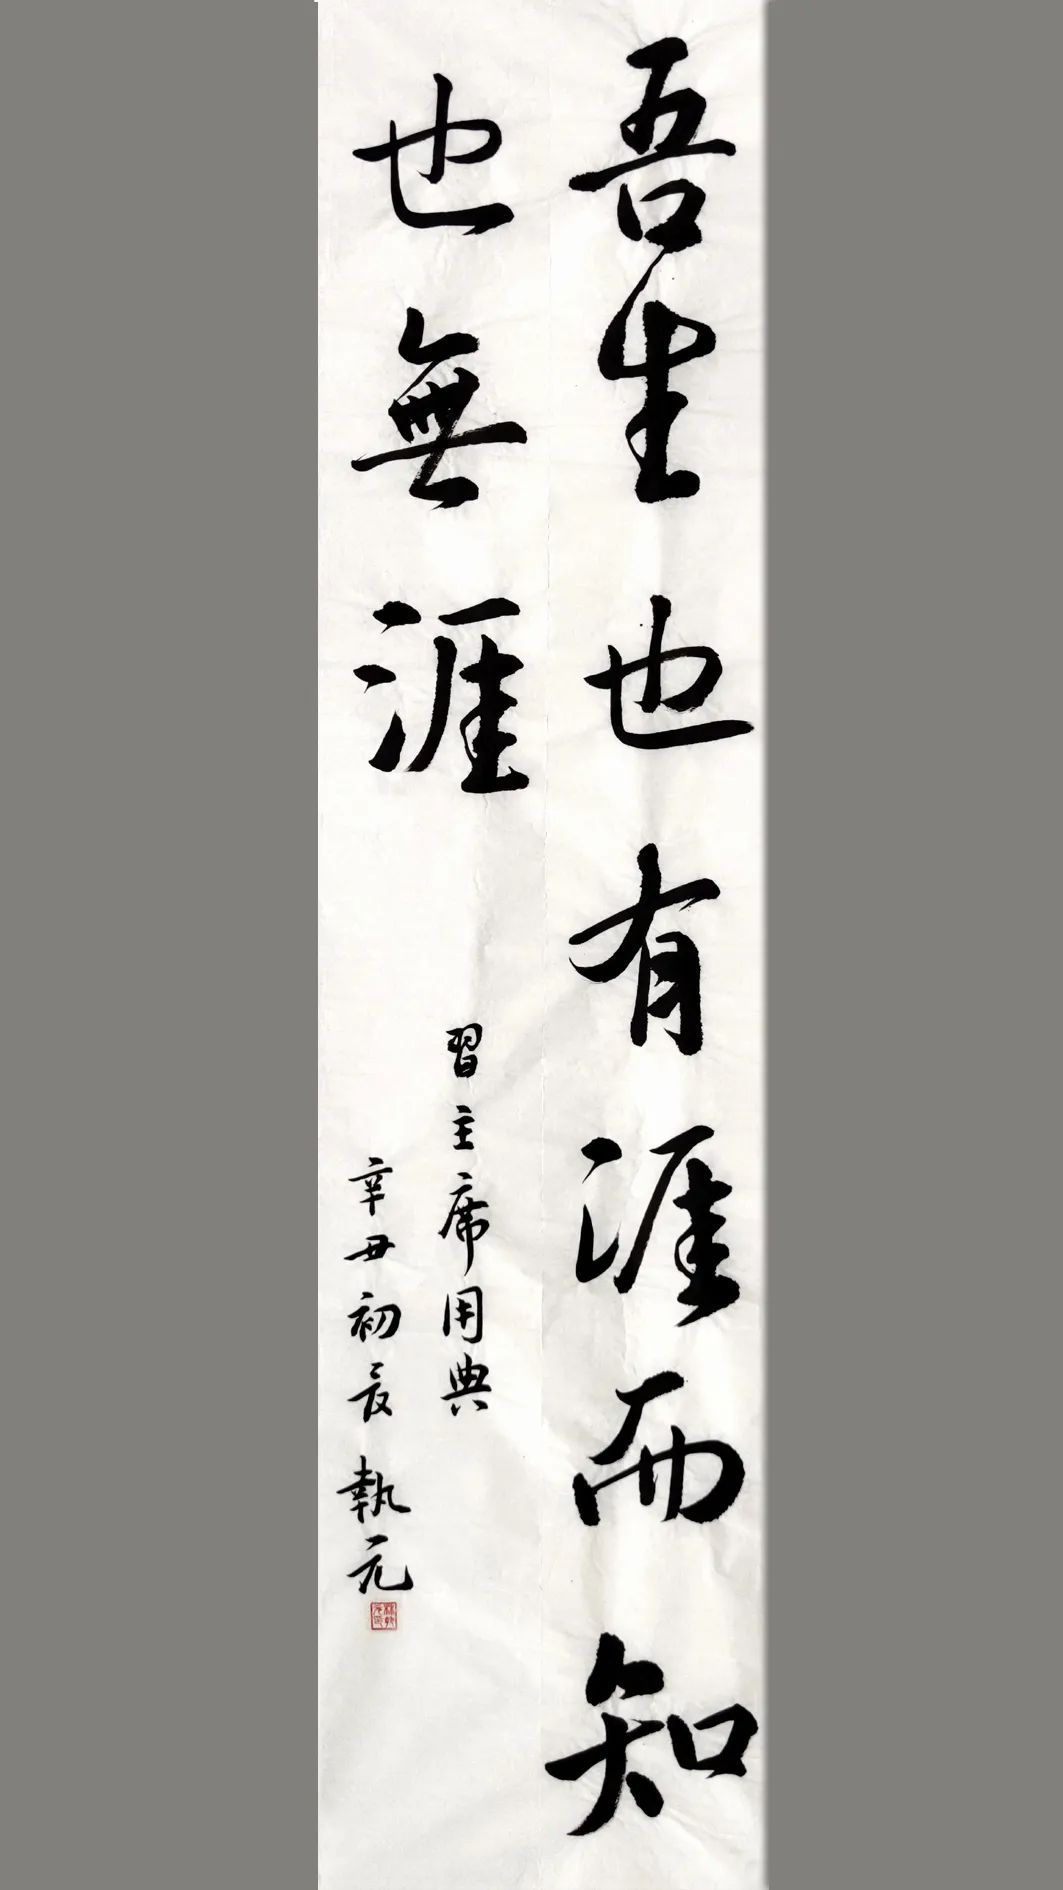 吾生也有涯而知
也無涯
習主席用典
辛丑初辰執元